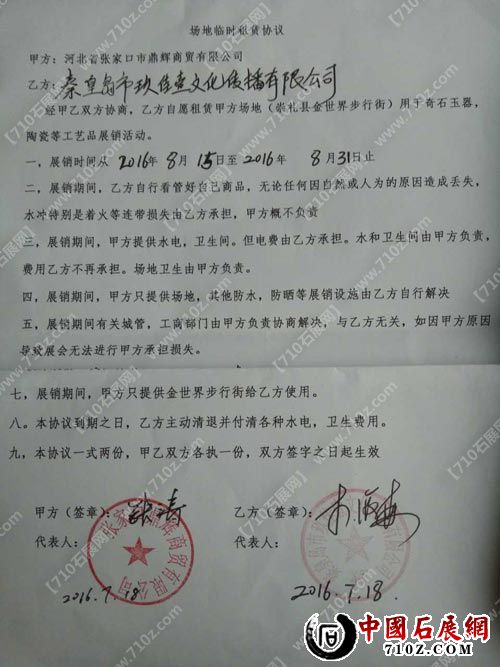 场地临时租赁协议
甲方：河北省张家口市鼎辉商贸有限公司
乙方：秦皇岛市玖佰壹文化传播有限公司
经甲乙双方协商，乙方自愿租赁甲方场地（崇礼县金世界步行街）用于奇石玉器，
陶瓷等工艺品展销活动。
一，展销时间从 2016年8月15日至2016年 8月31日止
二，展销期间，乙方自行看管好自己商品，无论任何因自然或人为的原因造成丢失，
水冲特别是着火等连带损失由乙方承担，甲方概不负责
三，展销期间，甲方提供水电，卫生间。但电费由乙方承担。水和卫生间由甲方负责，
费用乙方不再承担。场地卫生由甲方负责。
四，展销期间，甲方只提供场地，其他防水，防晒等展销设施由乙方自行解决
五，展销期间有关城管，工商部门由甲方负责协商解决，与乙方无关，如因甲方原因
导致展会无法进行甲方承担损失。
七，展销期间，甲方只提供金世界步行街给乙方使用。
八。本协议到期之日，乙方主动清退并付清各种水电，卫生费用。
九，本协议一式两份，甲乙双方各执一份，双方签字之日起生效
甲方（签章）：
乙方（签章）：
代表人：
代表人：
2016.7.18
2016.7.18.
中國石展網
710Z.COM
【710石展网】
www.710z.com